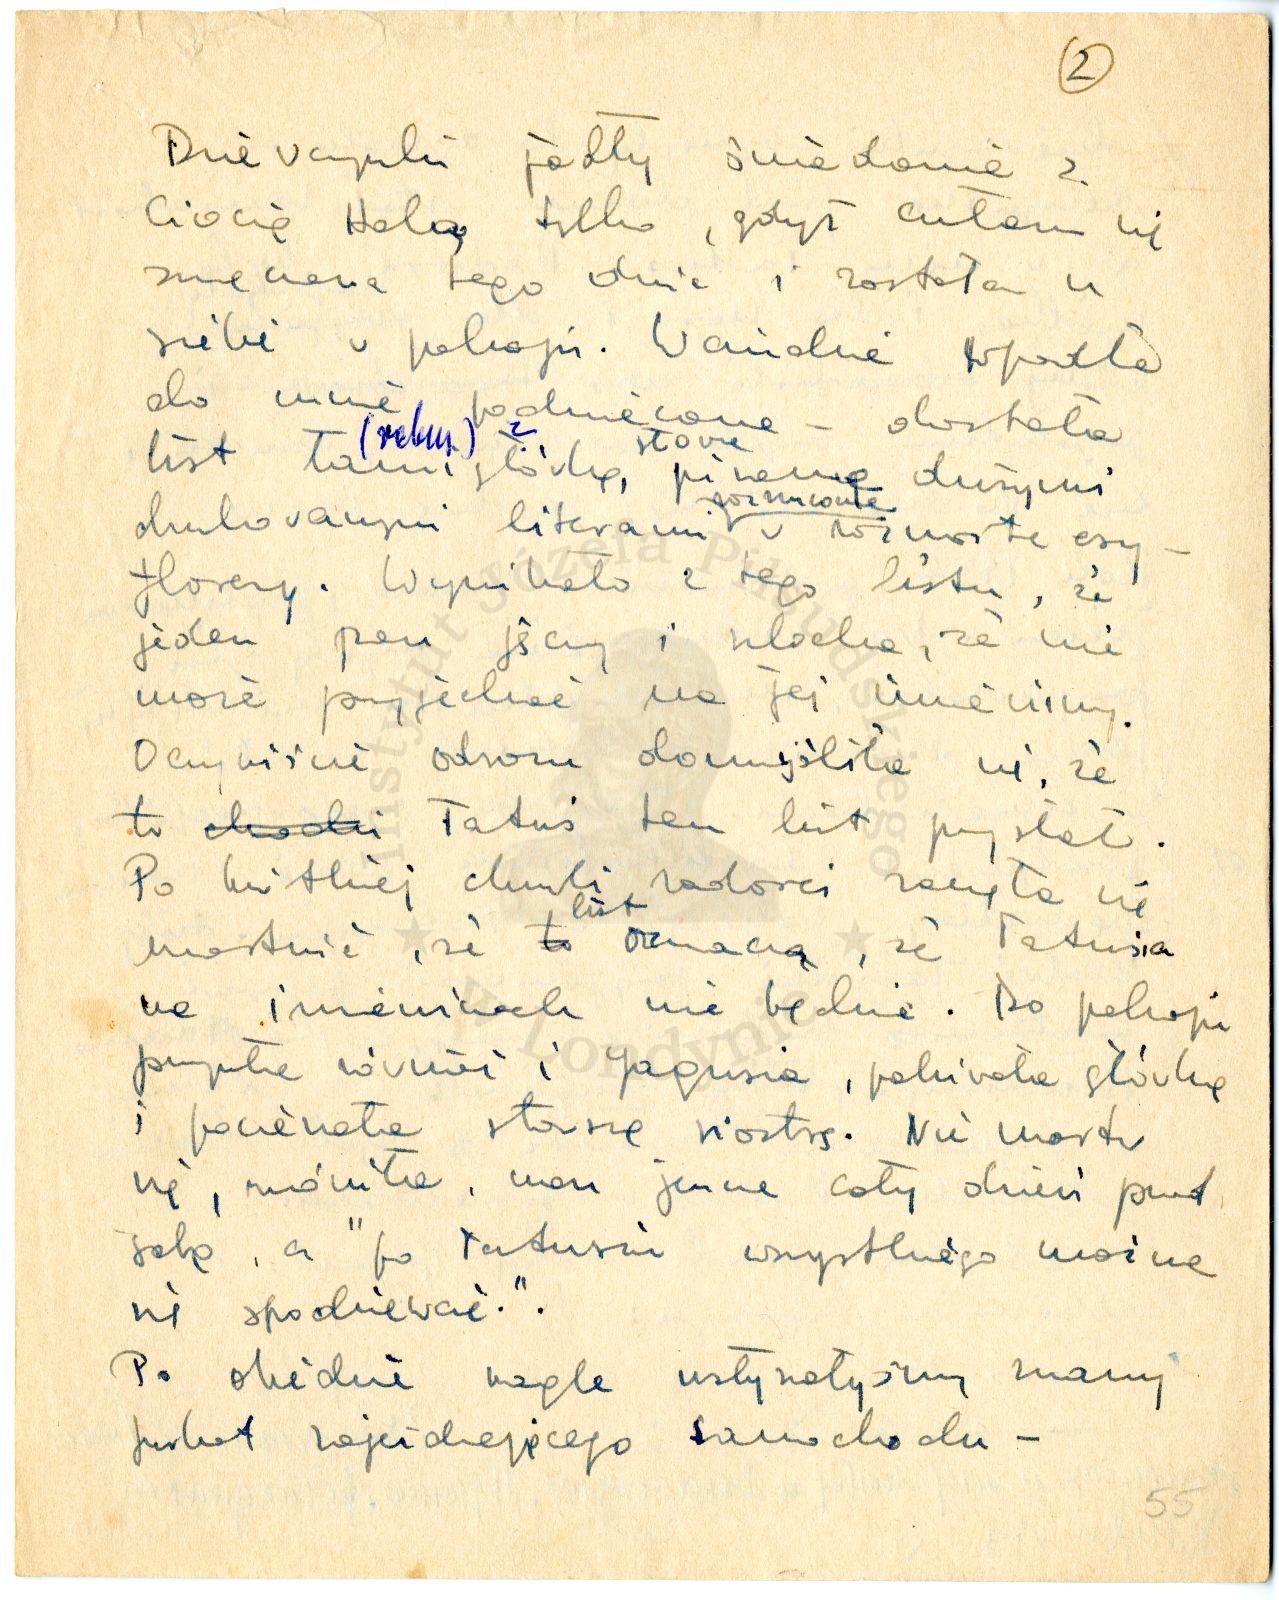 2
Dziewczynki jadły śniadanie z
Ciocią Helą tylko, gdyż czułam się
zmęczona tego dnia i zostałam u
siebie w pokoju. Wandzia wpadła
do mnie podniecona – dostała
list łamigłówkę, (rebus) z pisaną słowa dużymi
drukowanymi literami rozrzucone w rozmaite esy –
floresy. Wynikało z tego listu, że
jeden pan jęczy i szlocha, że nie
może przyjechać na jej imieniny.
Oczywiście odrazu domyśliła się, że
to chodzi Tatuś ten list przysłał.
Po krótkiej chwili radości zaczęła się
martwić, że to list oznacza, że Tatusia
na imieninach nie będzie. Do pokoju
przyszła również i Jagusia, pokiwała główką
i pocieszała starszą siostrę. Nie martw
się, mówiła, mam jeszcze cały dzień przed
sobą, a "po Tatusiu wszystkiego można
się spodziewać.".
Po obiedzie nagle usłyszałyśmy znany
furkot zajeżdżającego samochodu –
55
Instytut Józefa Piłsudskiego
w Londynie